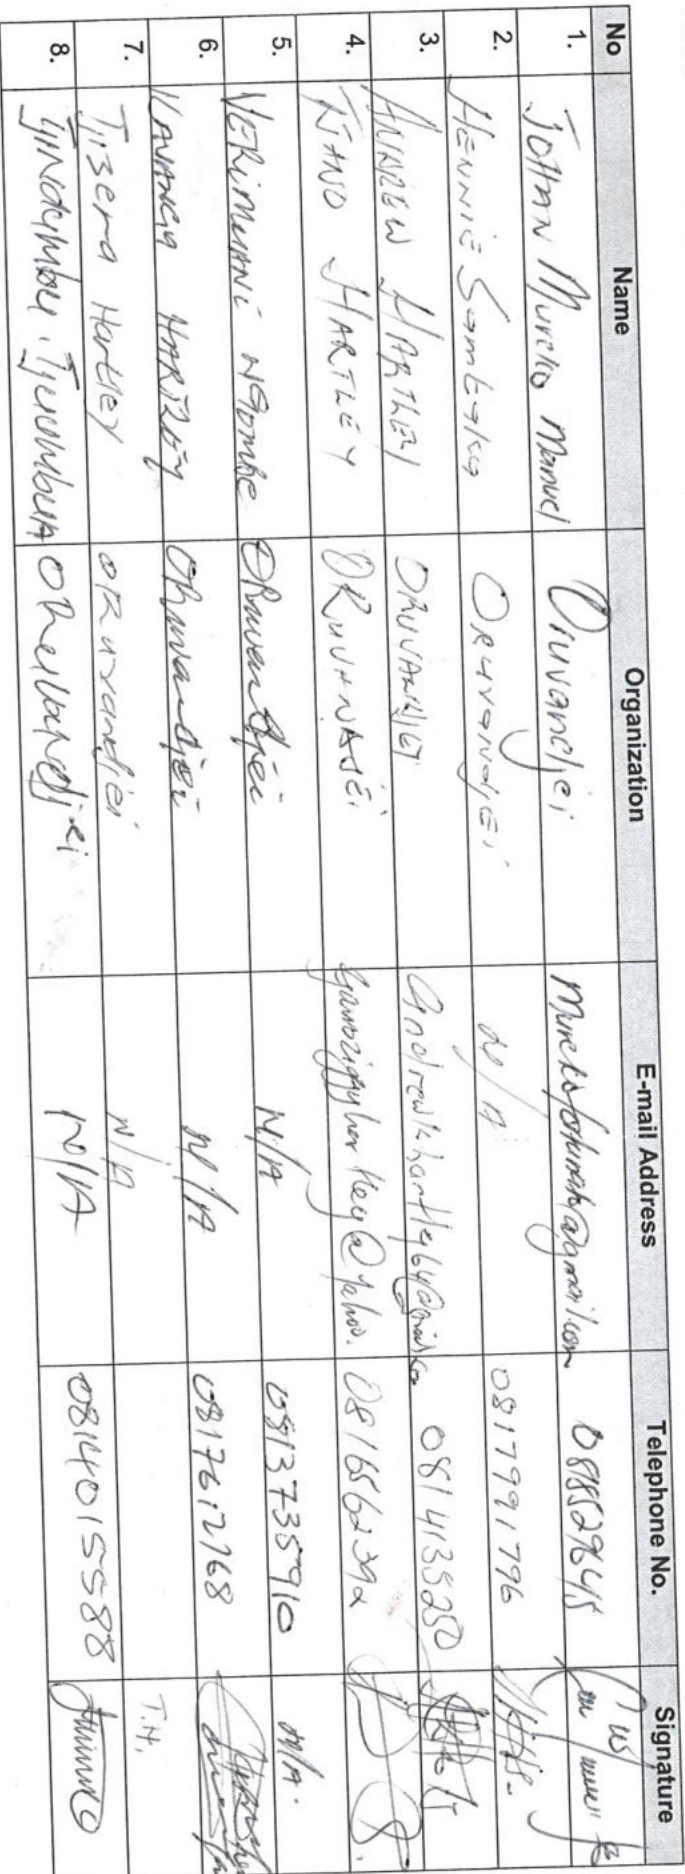 No Name Organization E-mail Address Telephone No. Signature
1. Johan Mureko Manuel Oruvandjei 0818529645
2. Hennie Sombaka Oruvandjei N/A 0817991796
3. Andrew Hartley Oruvandjei 0814135250
4. Nano Hartley Oruvanjei 0816562392
5. Verimuani Ngombe Oruvandjei N/A 0813735910 N/A.
6. Kavanga Hartley Oruvandjei N/A 0817612168
7. Tjisema Hartley Oruvandjei N/A T.H.
8. Tjindumbu. Oruvandjei N/A 0814015588